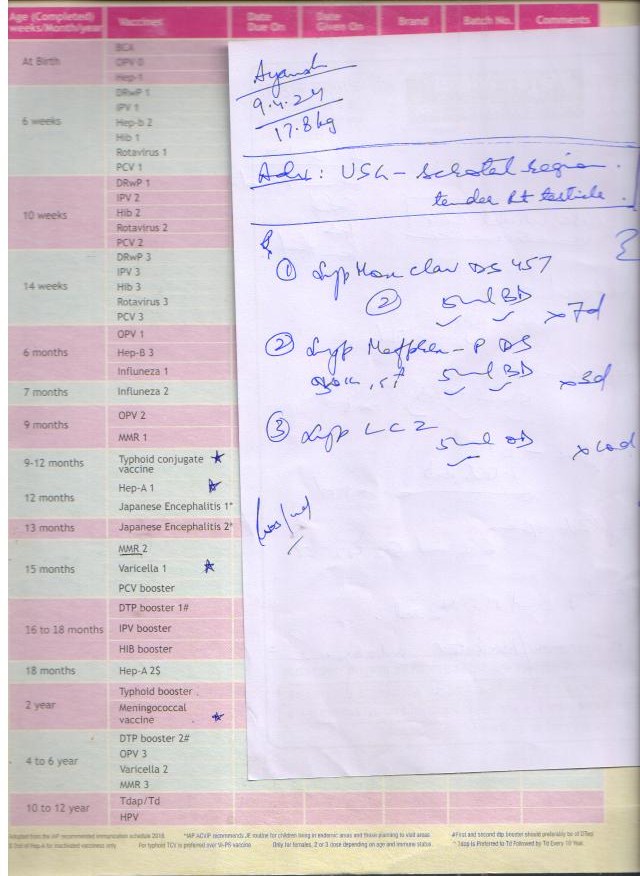 Age (Completed) weeks/Month/year Vaccines Date Due On Date Given On Brand Batch No. Comments
At Birth
BCA
OPV 0
Hep-1
6 weeks
DRwP 1
IPV 1
Hep-b 2
Hib 1
Rotavirus 1
PCV 1
10 weeks
DRwP 1
IPV 2
Hib 2
Rotavirus 2
PCV 2
14 weeks
DRwP 3
IPV 3
Hib 3
Rotavirus 3
PCV 3
6 months
OPV 1
Hep-B 3
Influneza 1
7 months Influneza 2
9 months
OPV 2
MMR 1
9-12 months Typhoid conjugate vaccine
12 months
Hep-A 1
Japanese Encephalitis 1*
13 months Japanese Encephalitis 2*
15 months
MMR 2
Varicella 1
PCV booster
16 to 18 months
DTP booster 1#
IPV booster
HIB booster
18 months Hep-A 2$
2 year
Typhoid booster
Meningococcal vaccine
4 to 6 year
DTP booster 2#
OPV 3
Varicella 2
MMR 3
10 to 12 year
Tdap/Td
HPV
Ayansh
9.4.24
17.8kg
Adv: USG - Scrotal region
tender Rt testicle.
① Syp Mox clav DS 457
② 5ml BD x 7d
② Syp Meftphen-P DS
5ml BD x 3d
③ Syp LCZ
5ml OD
Adopted from the IAP recommended immunization schedule 2018. *IAP ACVIP recommends JE routine for children living in endemic areas and those planning to visit areas #First and second dtp booster should preferably be of DTwp
For typhoid TCV is preferred over Vi-PS vaccine Only for females, 2 or 3 dose depending on age and immune status Tdap is Preferred to Td Followed by Td Every 10 Year.